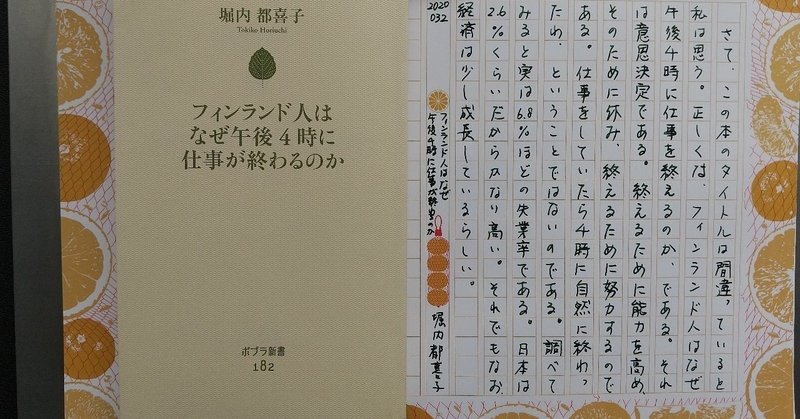 堀内 都喜子
Tokiko Horiuchi
フィンランド人は
なぜ午後4時に
仕事が終わるのか
ポプラ新書
182
さて、この本のタイトルは間違っていると
私は思う。正しくは、フィンランド人はなぜ
午後4時に仕事を終えるのか、である。それ
は意思決定である。終えるために能力を高め、
そのために休み、終えるために努力するので
ある。仕事をしていたら4時に自然に終わっ
たわ、ということではないのである。調べて
みると実は6.8%ほどの失業率である。日本は
2.6%くらいだからかなり高い。それでもなお、
経済は少し成長しているらしい。
2020
032
フィンランド人はなぜ
午後4時に仕事が終わるのか
堀内都喜子